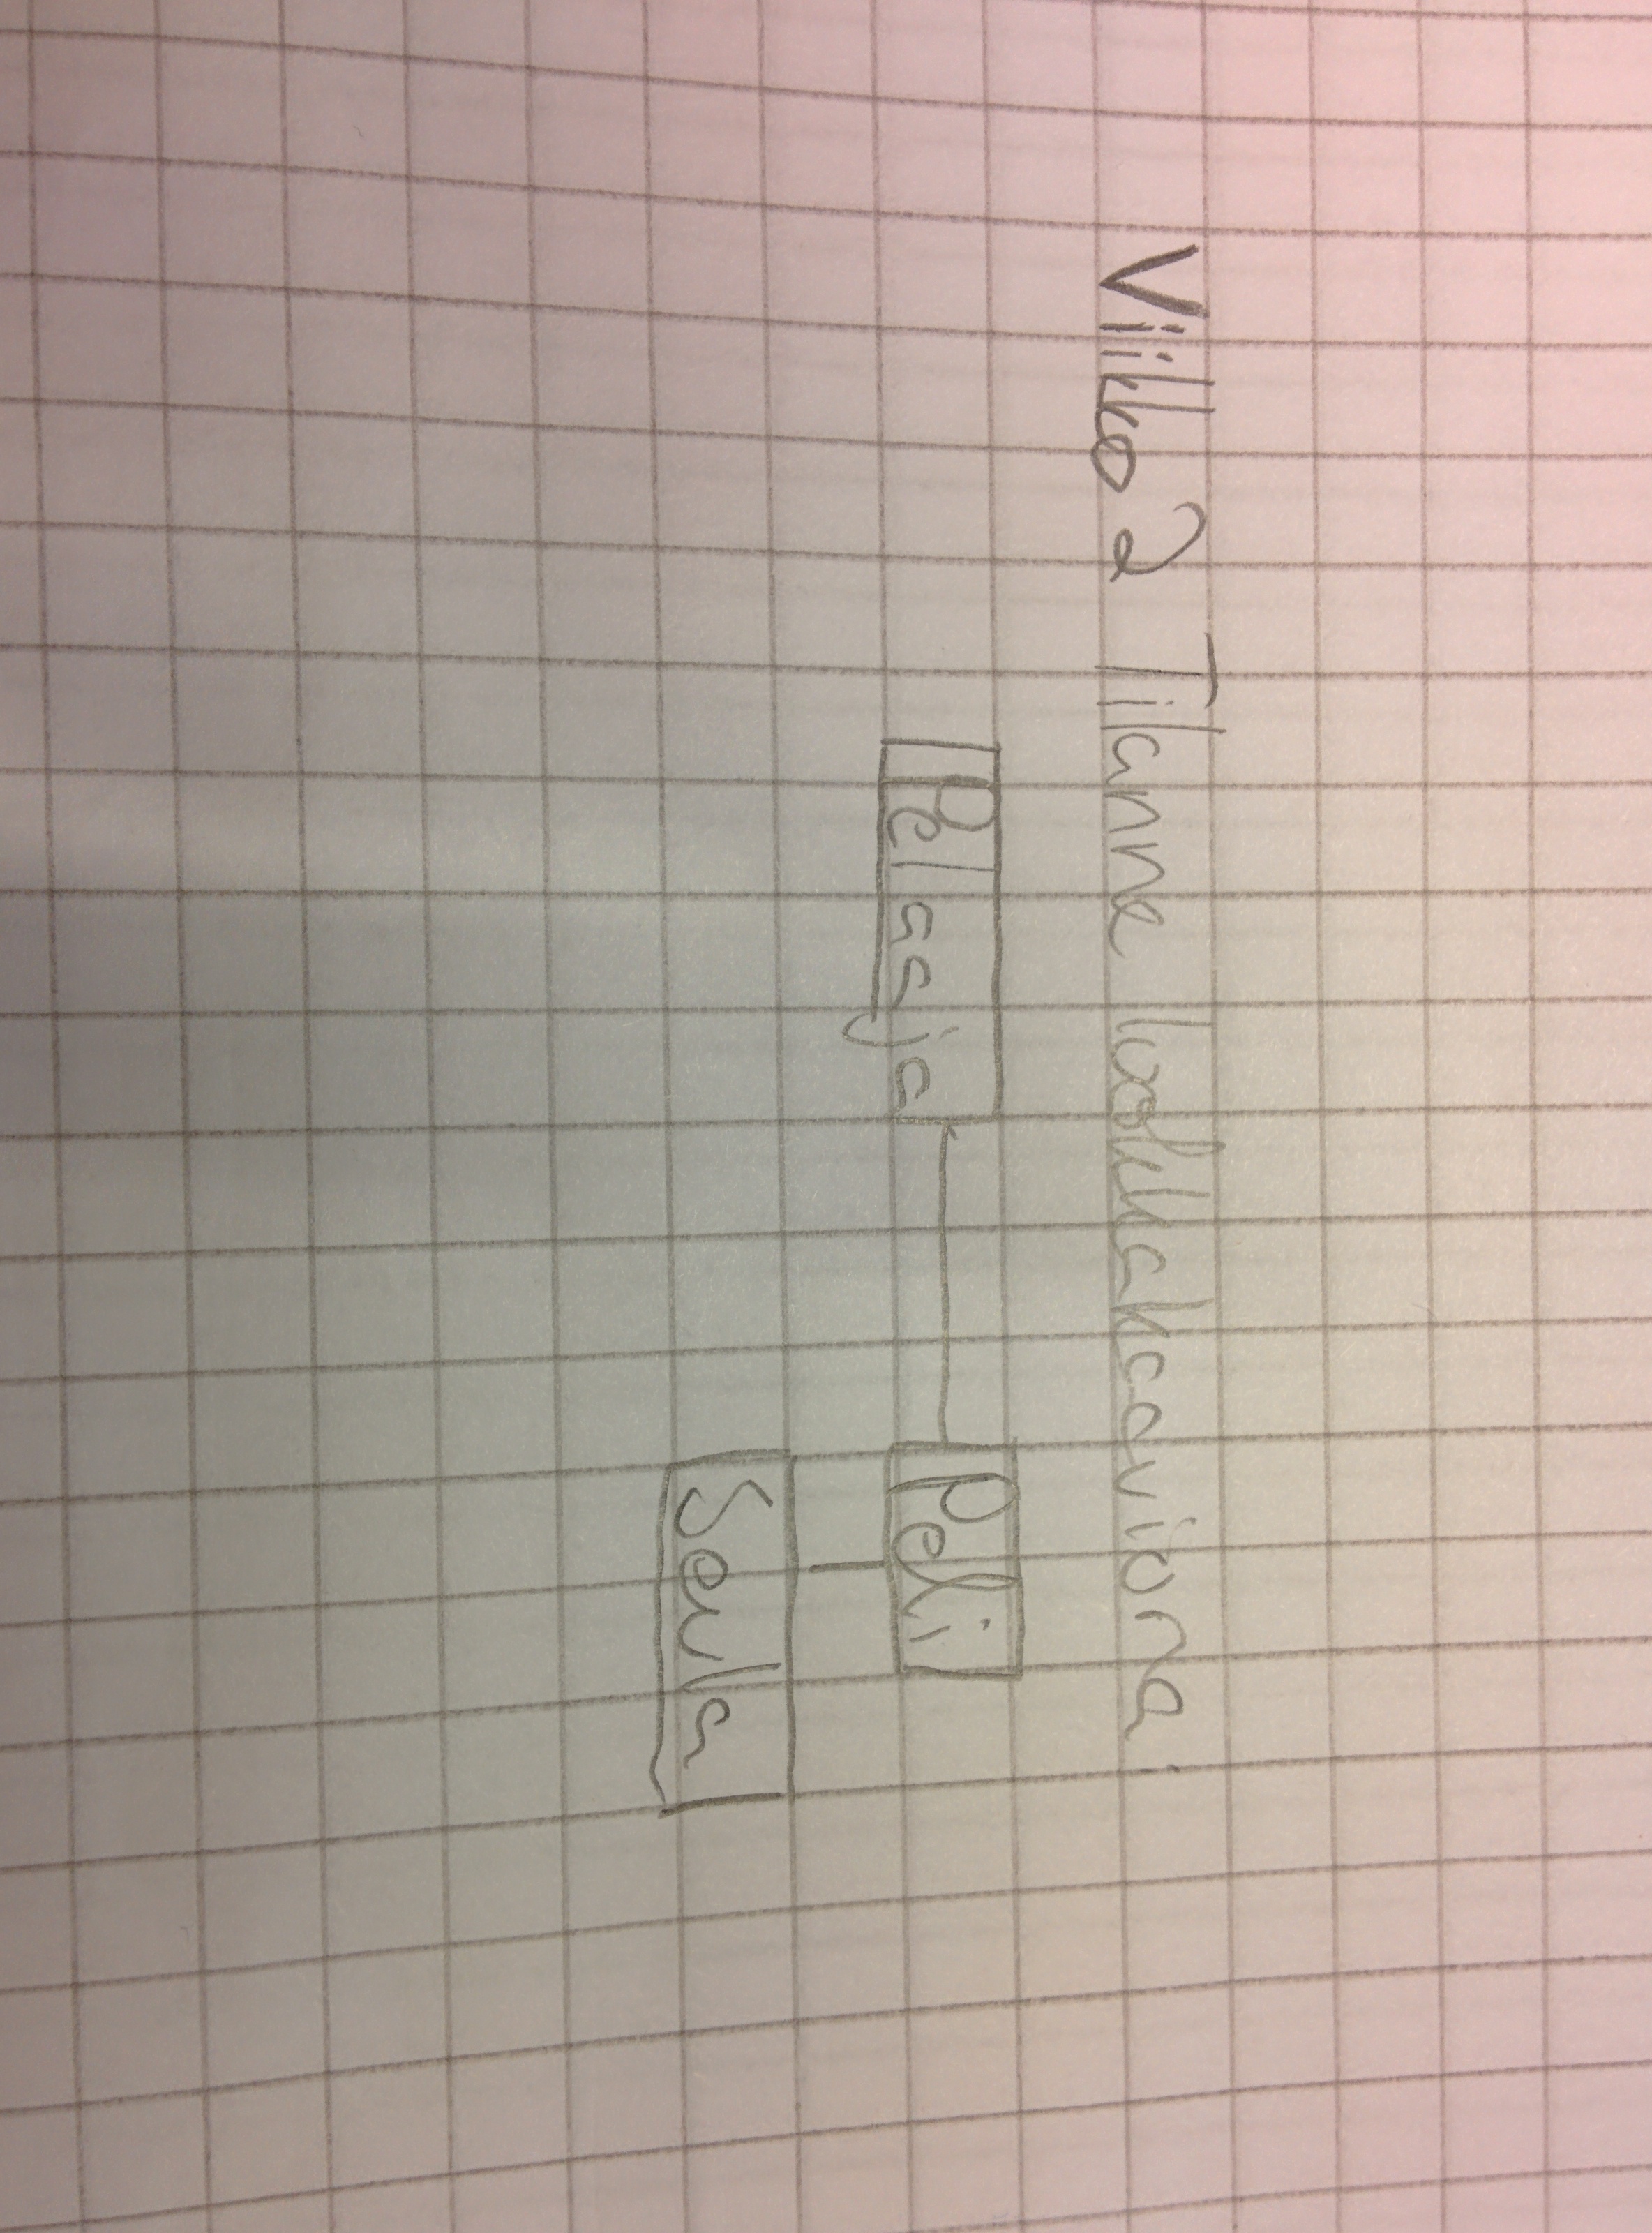 Viikko 2 Tilanne luokkakaaviona.
Pelaasja
Peli
Seula